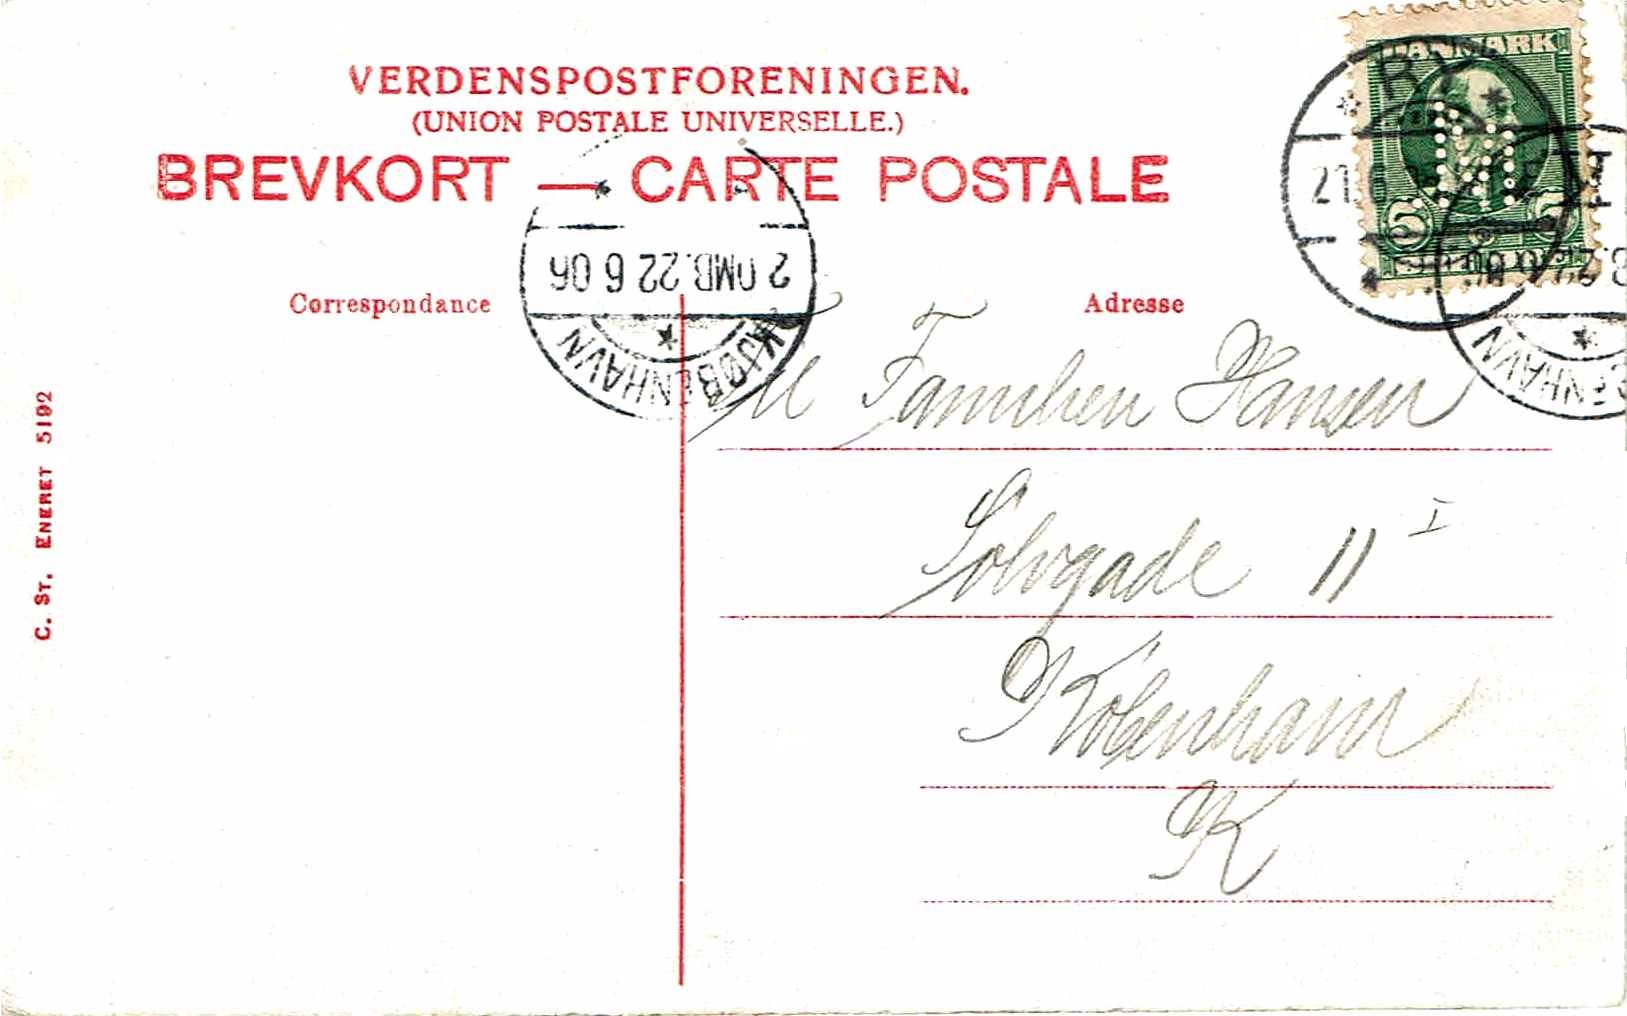 VERDENSPOSTFORENINGEN.
(UNION POSTALE UNIVERSELLE.)
BREVKORT — CARTE POSTALE
DANMARK
5 5
RY
21.
KJØBENHAVN
2 OMB. 22 6 06
ENHAVN
Correspondance
Adresse
Til Familien Hansen
Sølvgade 11 I
København
K
C. ST. ENERET 5192